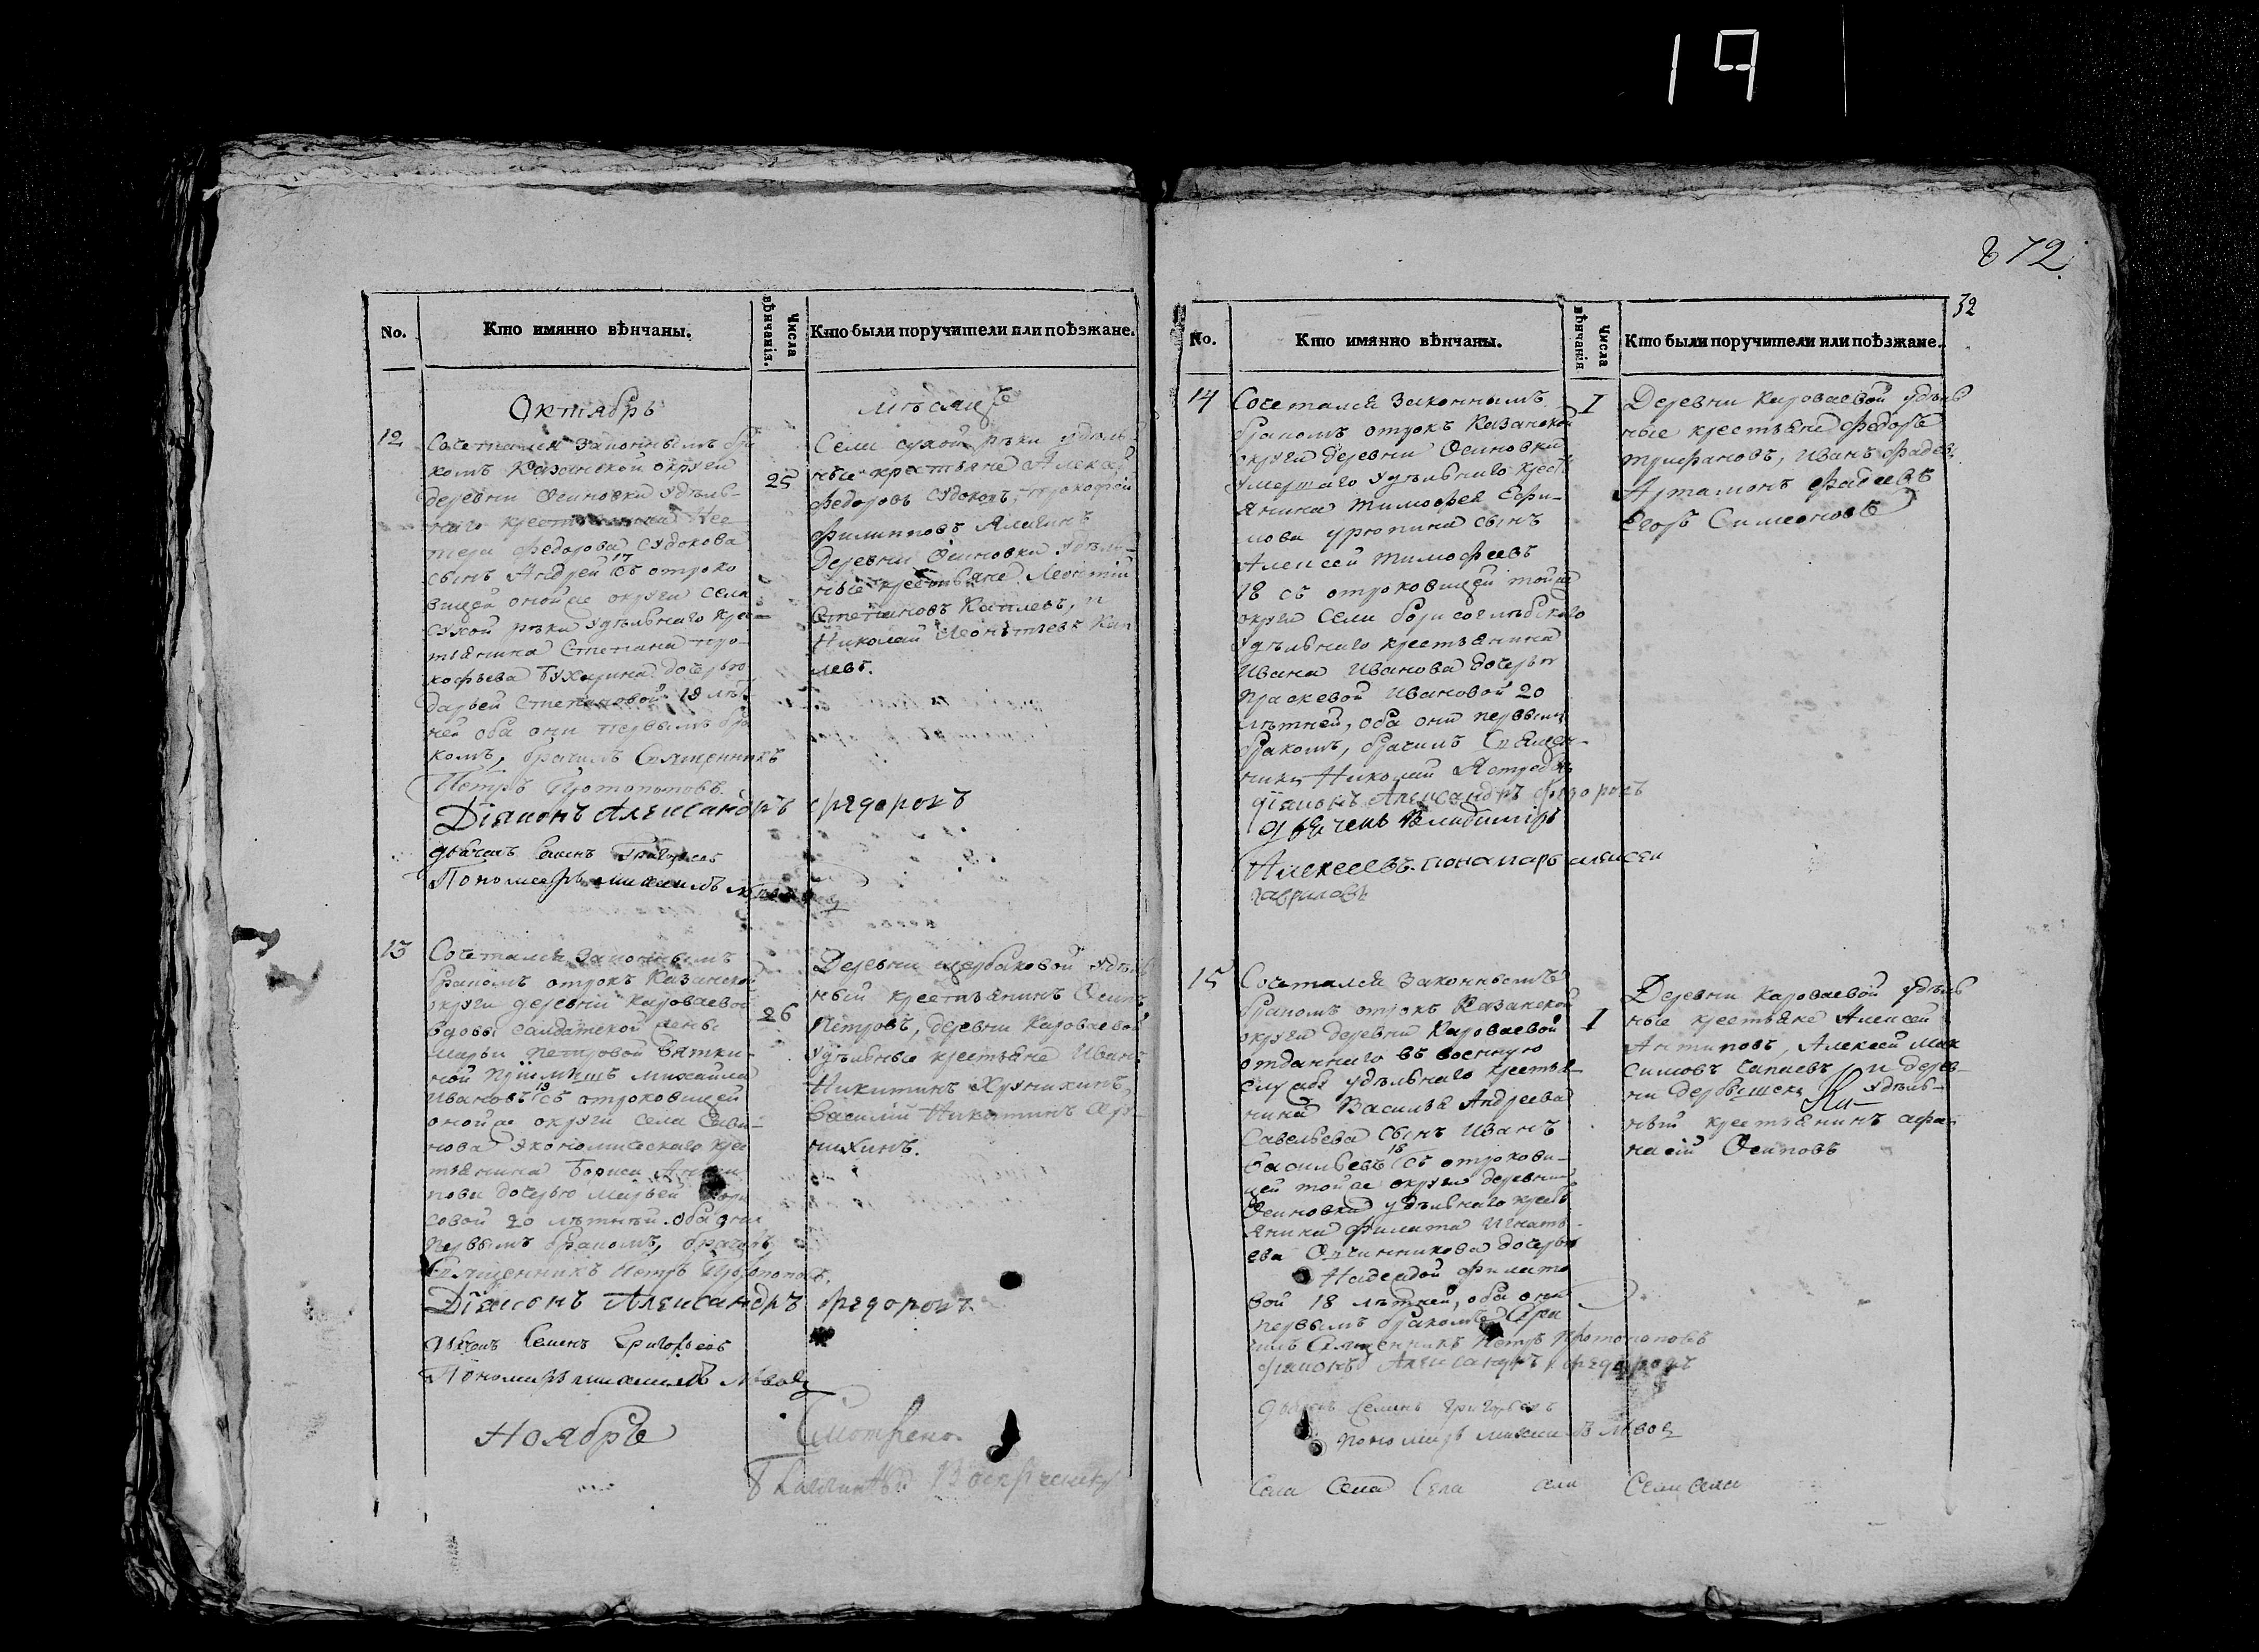 19
872
32
No.
Кто имянно вѣнчаны.
Числа вѣнчанія.
Кто были поручители или поѣзжане.
Октябрь
мѣсяцъ
12
Сочетался законнымъ бра
комъ Казанской округи
деревни Осиновки удѣль-
наго крестьянина Нес-
тера Федорова Судокова
сынъ Андрей 17 съ отроко
вицей оной же округи села
сухой рѣки удѣльнаго крес-
тьянина Степана про-
кофьева Бухарина дочерью
дарьей Степановой 18 лѣт
ней оба они первымъ бра
комъ, брачилъ Священникъ
Петръ Протопоповъ.
Діяконъ Александръ Федоровъ
дьячекъ Семенъ Григорьевъ
Пономарь михаилъ
25
Села сухой рѣки удѣль-
ные крестьяне Алексей
Федоровъ Судоковъ, прокофей
Филипповъ Алагинъ
деревни Осиновки удѣль-
ные крестьяне Леонтий
Степановъ Каплевъ, и
Николай Леонтьевъ Кап
левъ.
13
Сочетался законнымъ
бракомъ отрокъ Казанской
округи деревни Караваевой
вдовы салдатской жены
Марьи петровой вятки-
ной пріимышъ михайла
Ивановъ 18 съ отроковицей
оной же округи села Сави-
нова Экономическаго крес
тьянина Бориса
пова дочерью Марьей Бори
совой 20 лѣтней. оба они
первымъ бракомъ, брачилъ
Священникъ Петръ Протопоповъ.
Діяконъ Александръ Федоровъ
дьячекъ Семенъ Григорьевъ
Пономарь михаилъ Львовъ
26
Деревни щербаковой удѣль
ный крестьянинъ Осипъ
Петровъ, деревни Караваевой
удѣльные крестьяне Иванъ
Никитинъ Хрунихинъ,
Василій Никитинъ Хру-
нихинъ.
Ноябрь
Смотрено.
No.
Кто имянно вѣнчаны.
Числа вѣнчанія
Кто были поручители или поѣзжане.
14
Сочетался законнымъ
бракомъ отрокъ Казанской
округи деревни Осиновки
умершаго удѣльнаго крест
янина Тимофея Ефи-
мова урюпина сынъ
Алексей тимофеевъ
18 съ отроковицей той же
округи села борисоглѣбскаго
удѣльнаго крестьянина
Ивана Иванова дочерью
праскевой Ивановой 20
лѣтней, оба они первымъ
бракомъ, брачилъ Священ-
никъ Николай Ястребовъ
діяконъ Александръ Федоровъ
дьячекъ Владимиръ
Алексеевъ. понамарь алексеи
гавриловъ
I
Деревни Караваевой удѣль
ные крестьяне Федоръ
трифановъ, Иванъ Фадеев
Артамонъ Фадеевъ
Егоръ Симеоновъ
15
Сочетался законнымъ
бракомъ отрокъ Казанской
округи деревни Караваевой
отданнаго въ военную
службу удѣльнаго крестья-
нина Василья Андреева
Савельева сынъ Иванъ
Васильевъ 18 съ отрокови-
цей той же округи деревни
Осиновки удѣльнаго крест
янина Филата Игнать-
ева Овчинникова дочерью
Надеждой Филато
вой 18 лѣтней, оба они
первымъ бракомъ бра
чилъ Священникъ Петръ Протопоповъ
діяконъ Александръ Федоровъ
дьячекъ Семенъ Григорьевъ
пономарь михаилъ Львовъ
I
Деревни Караваевой удѣль
ные крестьяне Алексей
Антиповъ, Алексей Мак
симовъ Сапаевъ и дерев-
ни дербышекъ удѣль-
ный крестьянинъ афа-
насій Осиповъ
Села Села Села сели Села села